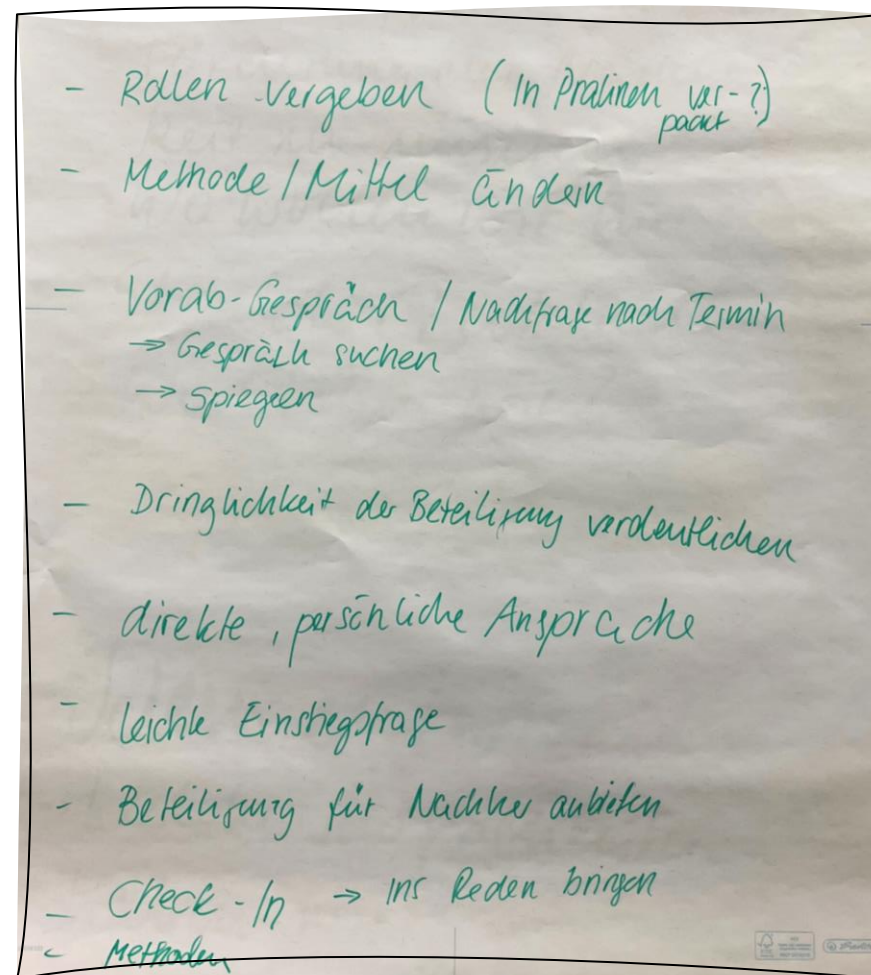 - Rollen vergeben (In Pralinen ver-?)
packt
- Methode / Mittel ändern
- Vorab-Gespräch / Nachfrage nach Termin
→ Gespräch suchen
→ Spiegeln
- Dringlichkeit der Beteiligung verdeutlichen
- direkte, persönliche Ansprache
- leichte Einstiegsfrage
- Beteiligung für Nachher anbieten
- Check-In → ins Reden bringen
- Methoden